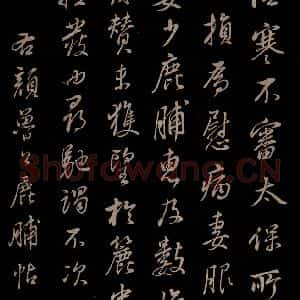 寒不審太保所
損為慰病妻服
要少鹿脯惠及數
贊未獲望於簏中
發也尋馳謁不次
右顏魯公鹿脯帖
Shufawang.CN